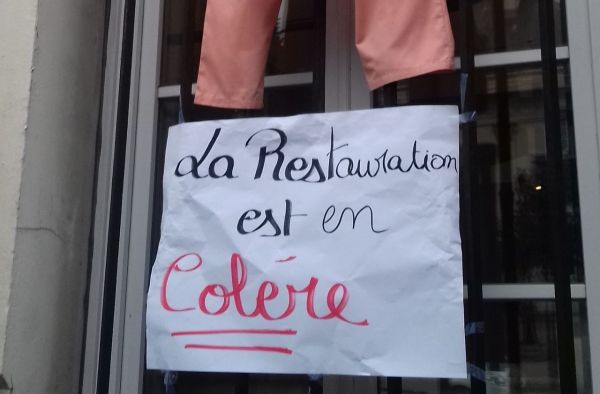 La Restauration
est en
Colére